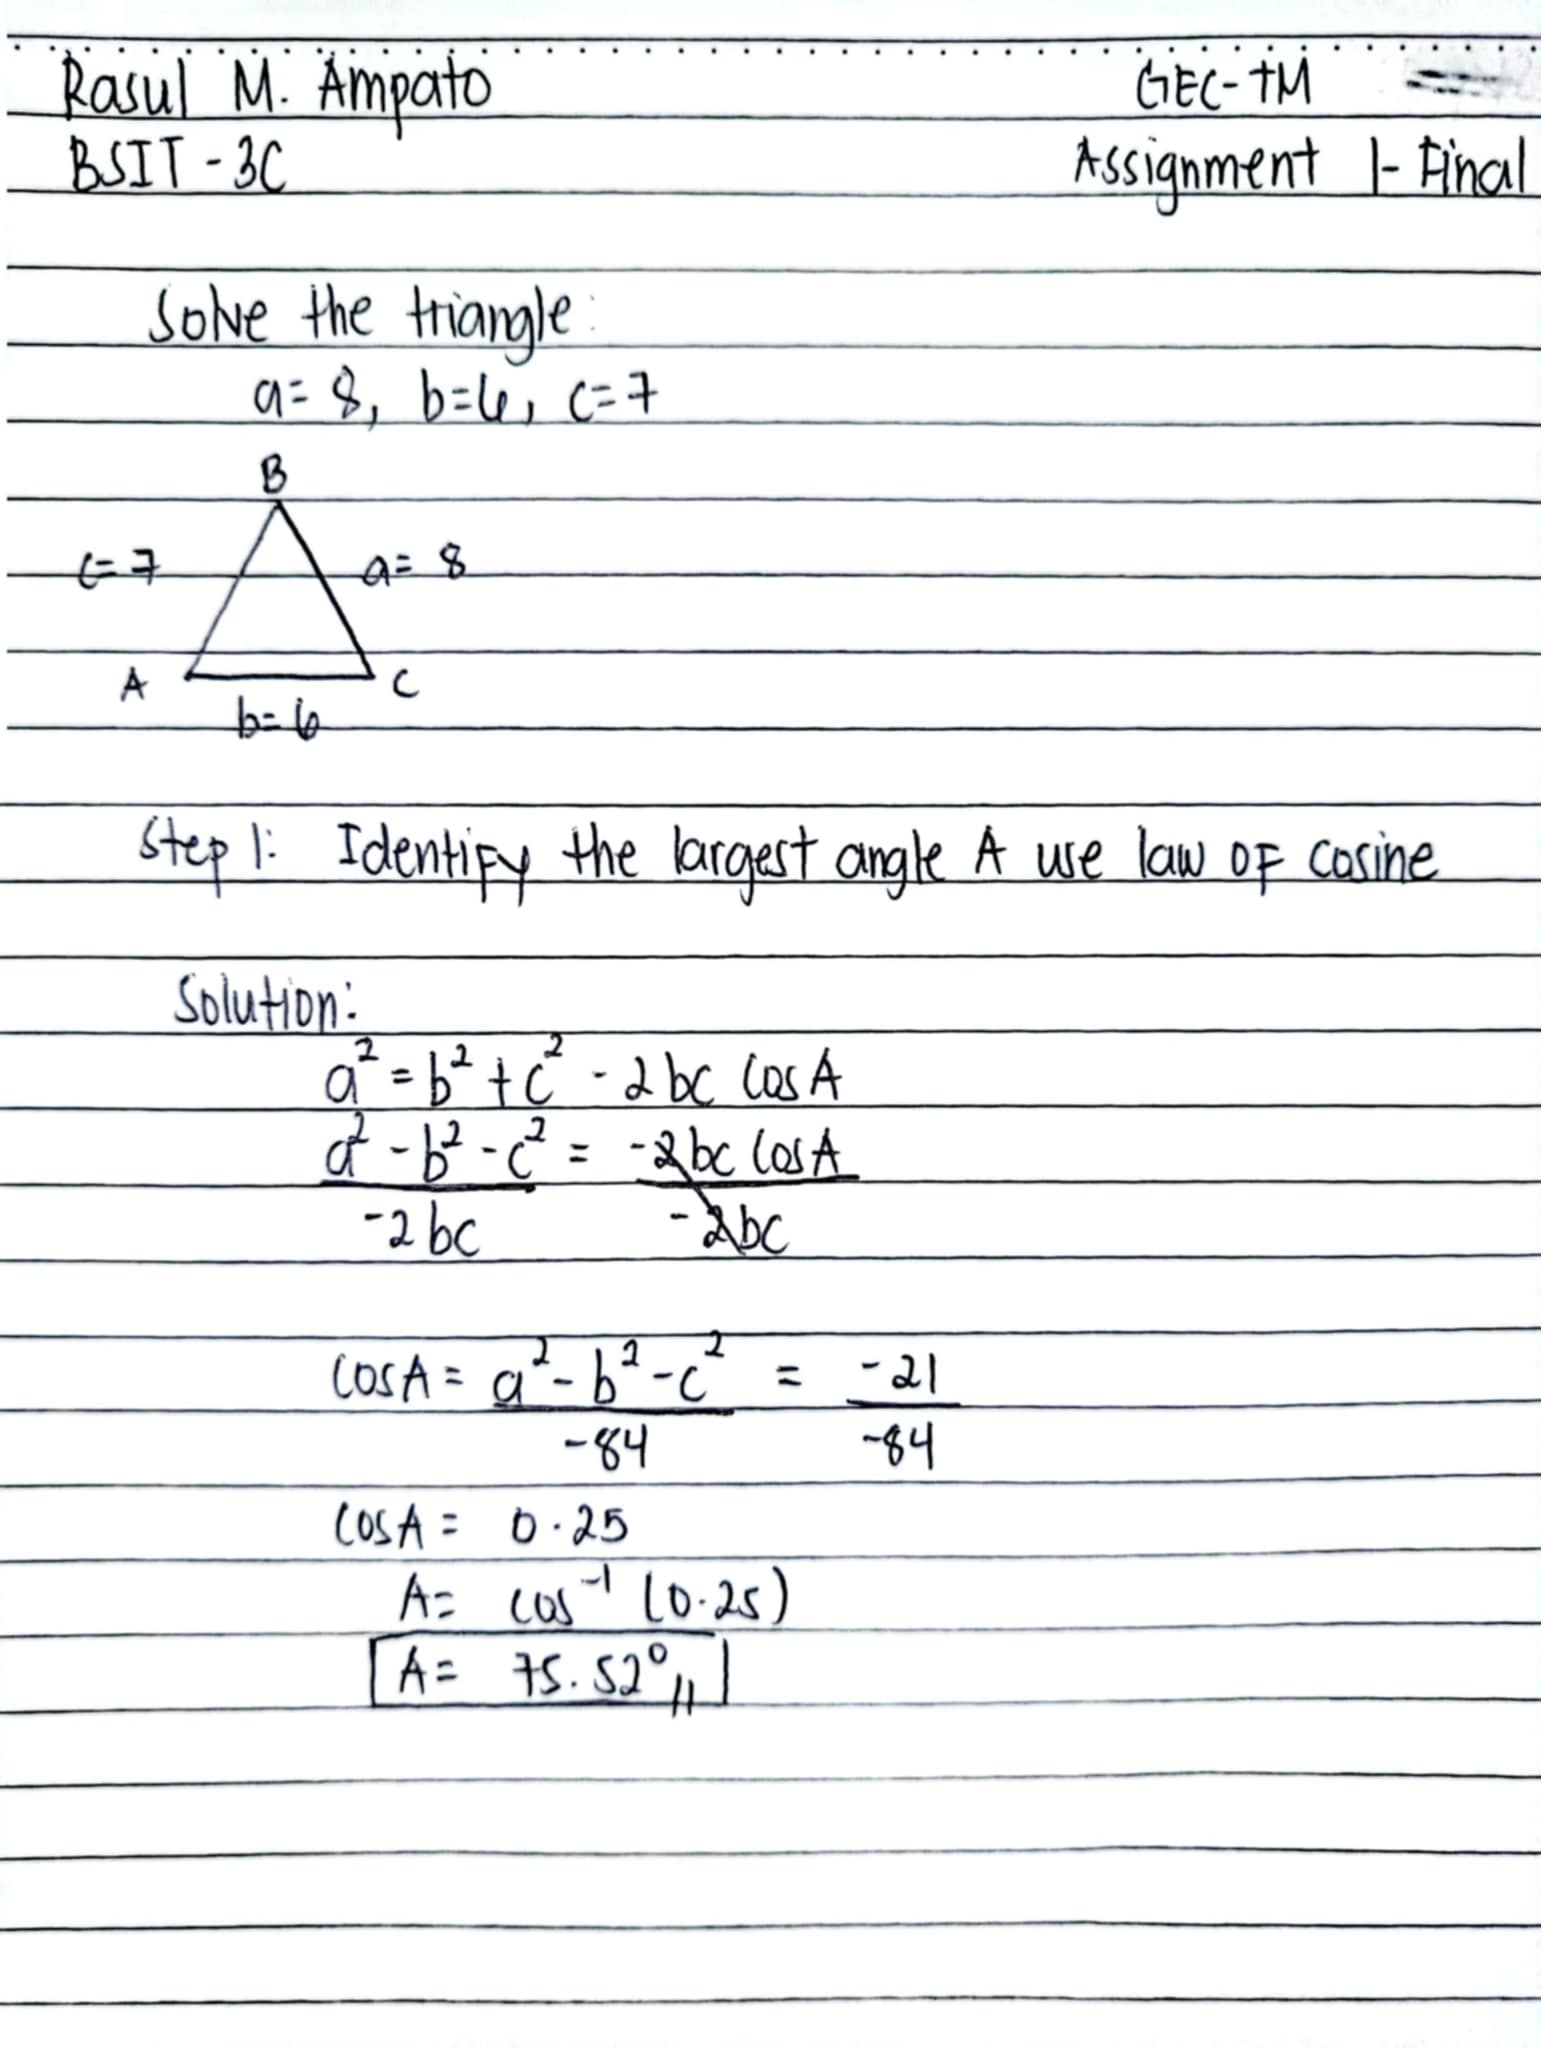 Rasul M. Ampato GEC-TM
BSIT - 3C Assignment 1- Final
Solve the triangle:
a= 8, b=6, c=7
B
c=7 a= 8
A C
b=6
Step 1: Identify the largest angle A use law of cosine
Solution:
a² = b² + c² - 2bc cos A
a² - b² - c² = -2bc cos A
-2bc -2bc
cos A = a² - b² - c² = -21
-84 -84
cos A = 0.25
A = cos⁻¹ (0.25)
A = 75.52°//